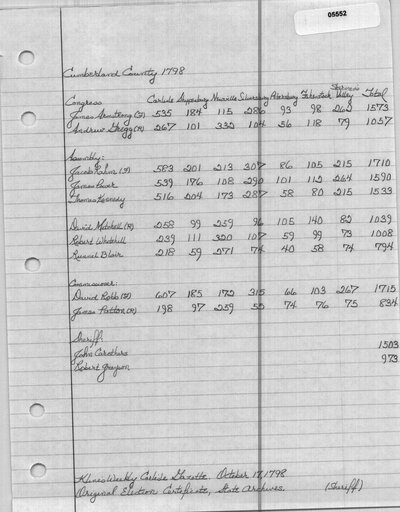 05552
Cumberland County 1798
Stevens
Congress Carlisle Shippensburg Newville Silverssburg Petersburg Fahnestock Valley Total
James Armstrong (F) 535 184 115 286 93 98 262 1573
Andrew Gregg (R) 267 101 332 104 56 118 79 1057
Assembly:
Jacob Rahm (F) 583 201 213 307 86 105 215 1710
James Power 539 176 108 290 101 112 264 1590
Thomas Kennedy 516 204 173 287 58 80 215 1533
David Mitchell (R) 258 99 259 96 105 140 82 1039
Robert Whitehill 239 111 320 107 59 99 73 1008
Runnel Blair 218 59 271 74 40 58 74 794
Commissioner:
David Robb (F) 607 185 172 315 66 103 267 1715
James Patton (R) 198 97 259 55 74 76 75 834
Sheriff:
John Carothers 1503
Robert Grayson 973
Klines Weekly Carlisle Gazette. October 17, 1798
Original Election Certificate, State Archives. (Sheriff)